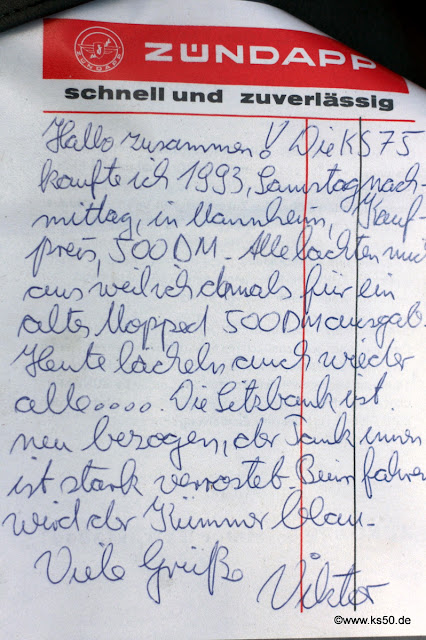 ZÜNDAPP
ZÜNDAPP
schnell und zuverlässig
Hallo zusammen! Die KS 75
kaufte ich 1993, Samstag nach-
mittag, in Mannheim, Kauf-
preis, 500 DM. Alle lachten mich
aus weil ich damals für ein
altes Mopped 500 DM ausgab.
Heute lächeln auch wieder
alle.... Die Sitzbank ist
neu bezogen, der Tank innen
ist stark verrostet. Beim fahren
wird der Krümmer blau.
Viele Grüße Viktor
©www.ks50.de